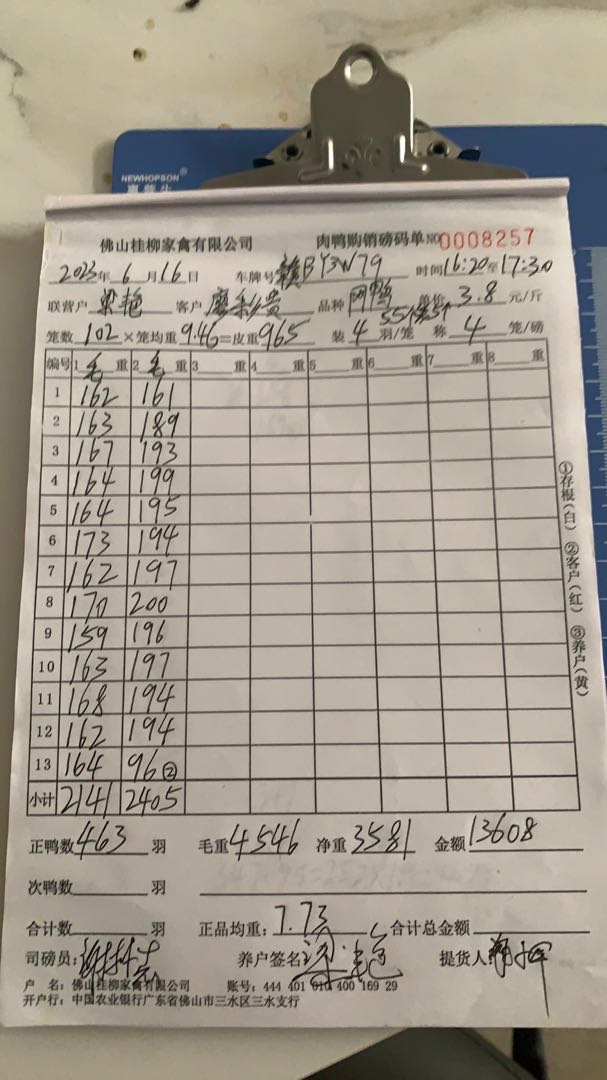 NEWHOPSON®
佛山桂柳家禽有限公司 肉鸭购销磅码单 NO 0008257
2023年6月16日 车牌号 赣BY3W79 时间16:20至17:30
联营户 梁艳 客户 品种 单价 3.8 元/斤
笼数 102 ×笼均重 9.46=皮重 965 装 4 羽/笼 称 4 笼/磅
编号 1 毛 重 2 毛 重 3 重 4 重 5 重 6 重 7 重 8 重
1 162 161
2 163 189
3 167 193
4 164 199
5 164 195
6 173 194
7 162 197
8 170 200
9 159 196
10 163 197
11 168 194
12 162 194
13 164 96②
小计 2141 2405
正鸭数 463 羽 毛重 4546 净重 3581 金额 13608
次鸭数 羽
合计数 羽 正品均重: 7.73 合计总金额
司磅员: 养户签名: 梁艳 提货人
户 名: 佛山桂柳家禽有限公司 账号: 444 401 010 400 169 29
开户行: 中国农业银行广东省佛山市三水区三水支行
①存根(白) ②客户(红) ③养户(黄)